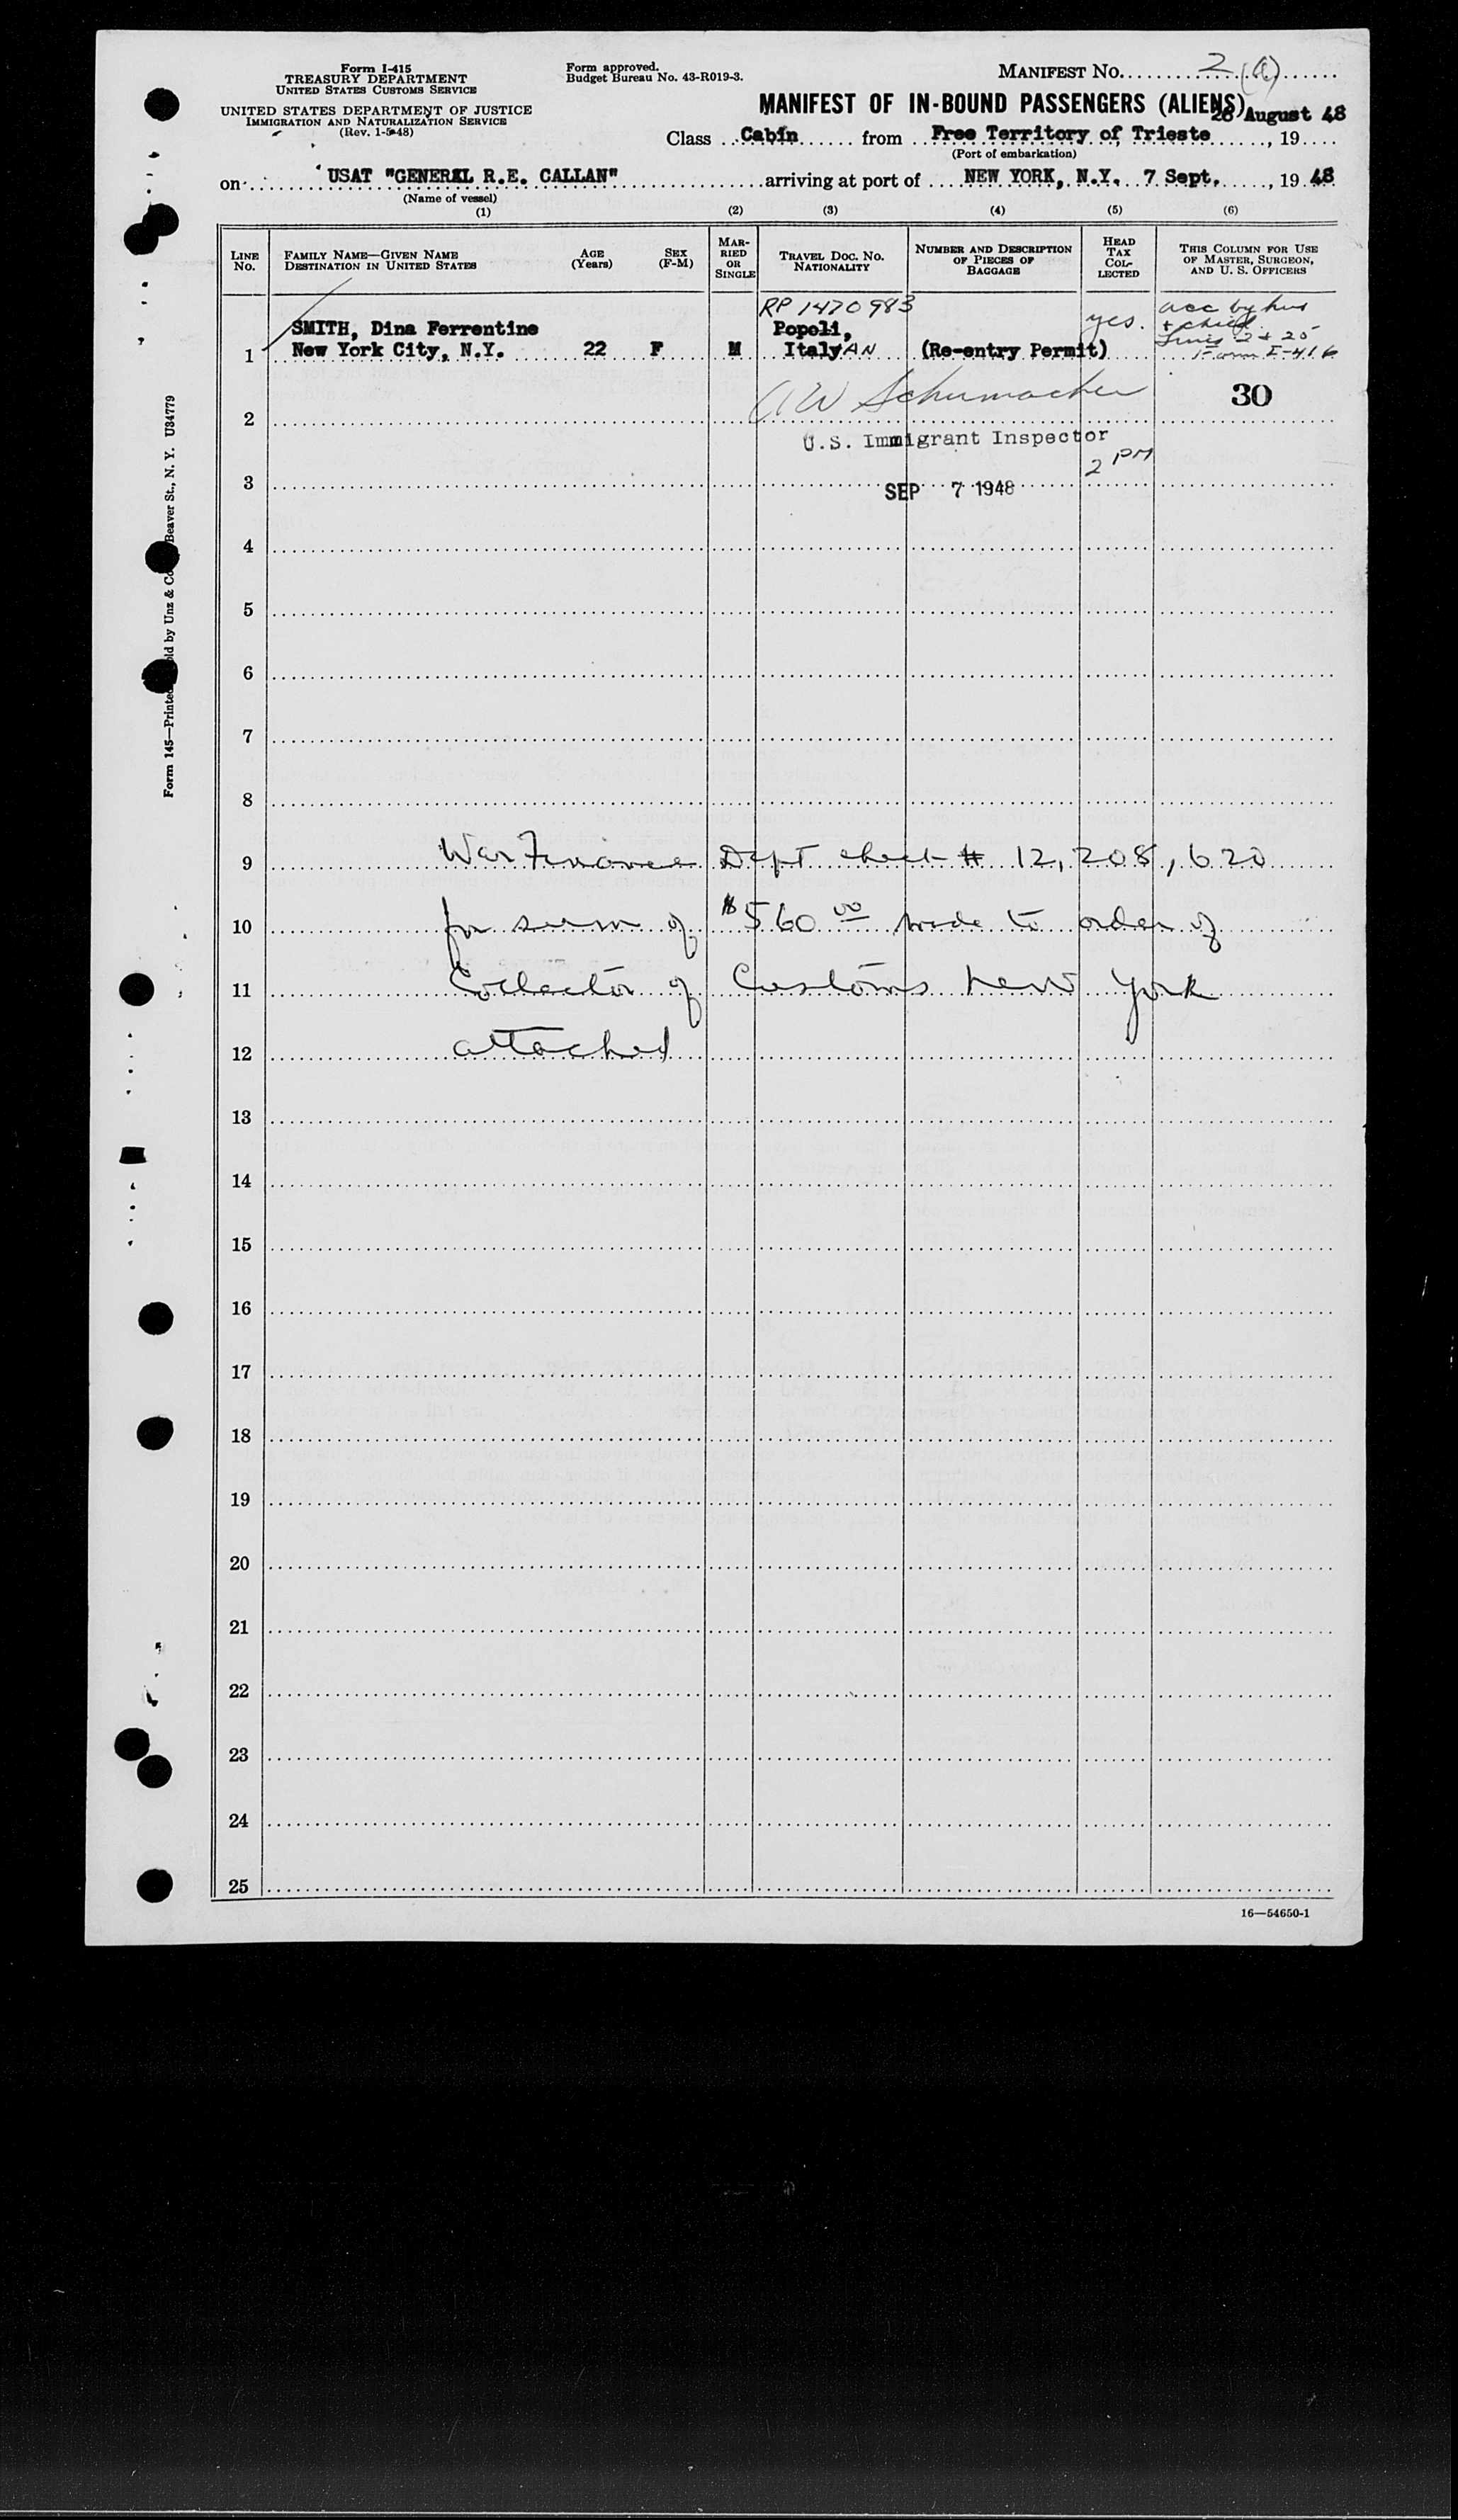 Form I-415
TREASURY DEPARTMENT
UNITED STATES CUSTOMS SERVICE
UNITED STATES DEPARTMENT OF JUSTICE
IMMIGRATION AND NATURALIZATION SERVICE
(Rev. 1-5-48)
Form approved.
Budget Bureau No. 43-R019-3.
MANIFEST NO. 2 (a)
MANIFEST OF IN-BOUND PASSENGERS (ALIENS)
26 August 48
Class Cabin from Free Territory of Trieste, 19
(Port of embarkation)
on USAT "GENERAL R.E. CALLAN" arriving at port of NEW YORK, N.Y. 7 Sept., 19 48
(Name of vessel)
(1) (2) (3) (4) (5) (6)
LINE NO.
FAMILY NAME—GIVEN NAME
DESTINATION IN UNITED STATES
AGE
(Years)
SEX
(F-M)
MAR-
RIED
OR
SINGLE
TRAVEL DOC. NO.
NATIONALITY
NUMBER AND DESCRIPTION
OF PIECES OF
BAGGAGE
HEAD
TAX
COL-
LECTED
THIS COLUMN FOR USE
OF MASTER, SURGEON,
AND U. S. OFFICERS
RP 1470983
SMITH, Dina Ferrentine Popoli, yes.
1 New York City, N.Y. 22 F M ItalyAN (Re-entry Permit)
acc by hus
+ child
Lines 2 + 25
Form I-416
30
2
AW Schumacher
U.S. Immigrant Inspector
2 PM
3
SEP 7 1948
4
5
6
7
8
9 War Finance Dept check # 12,208,620
10 for sum of $560 00 made to order of
11 Collector of Customs New York
12 attached
13
14
15
16
17
18
19
20
21
22
23
24
25
16—54650-1
Form 145—Printed old by Unz & Co Beaver St., N. Y. U34779